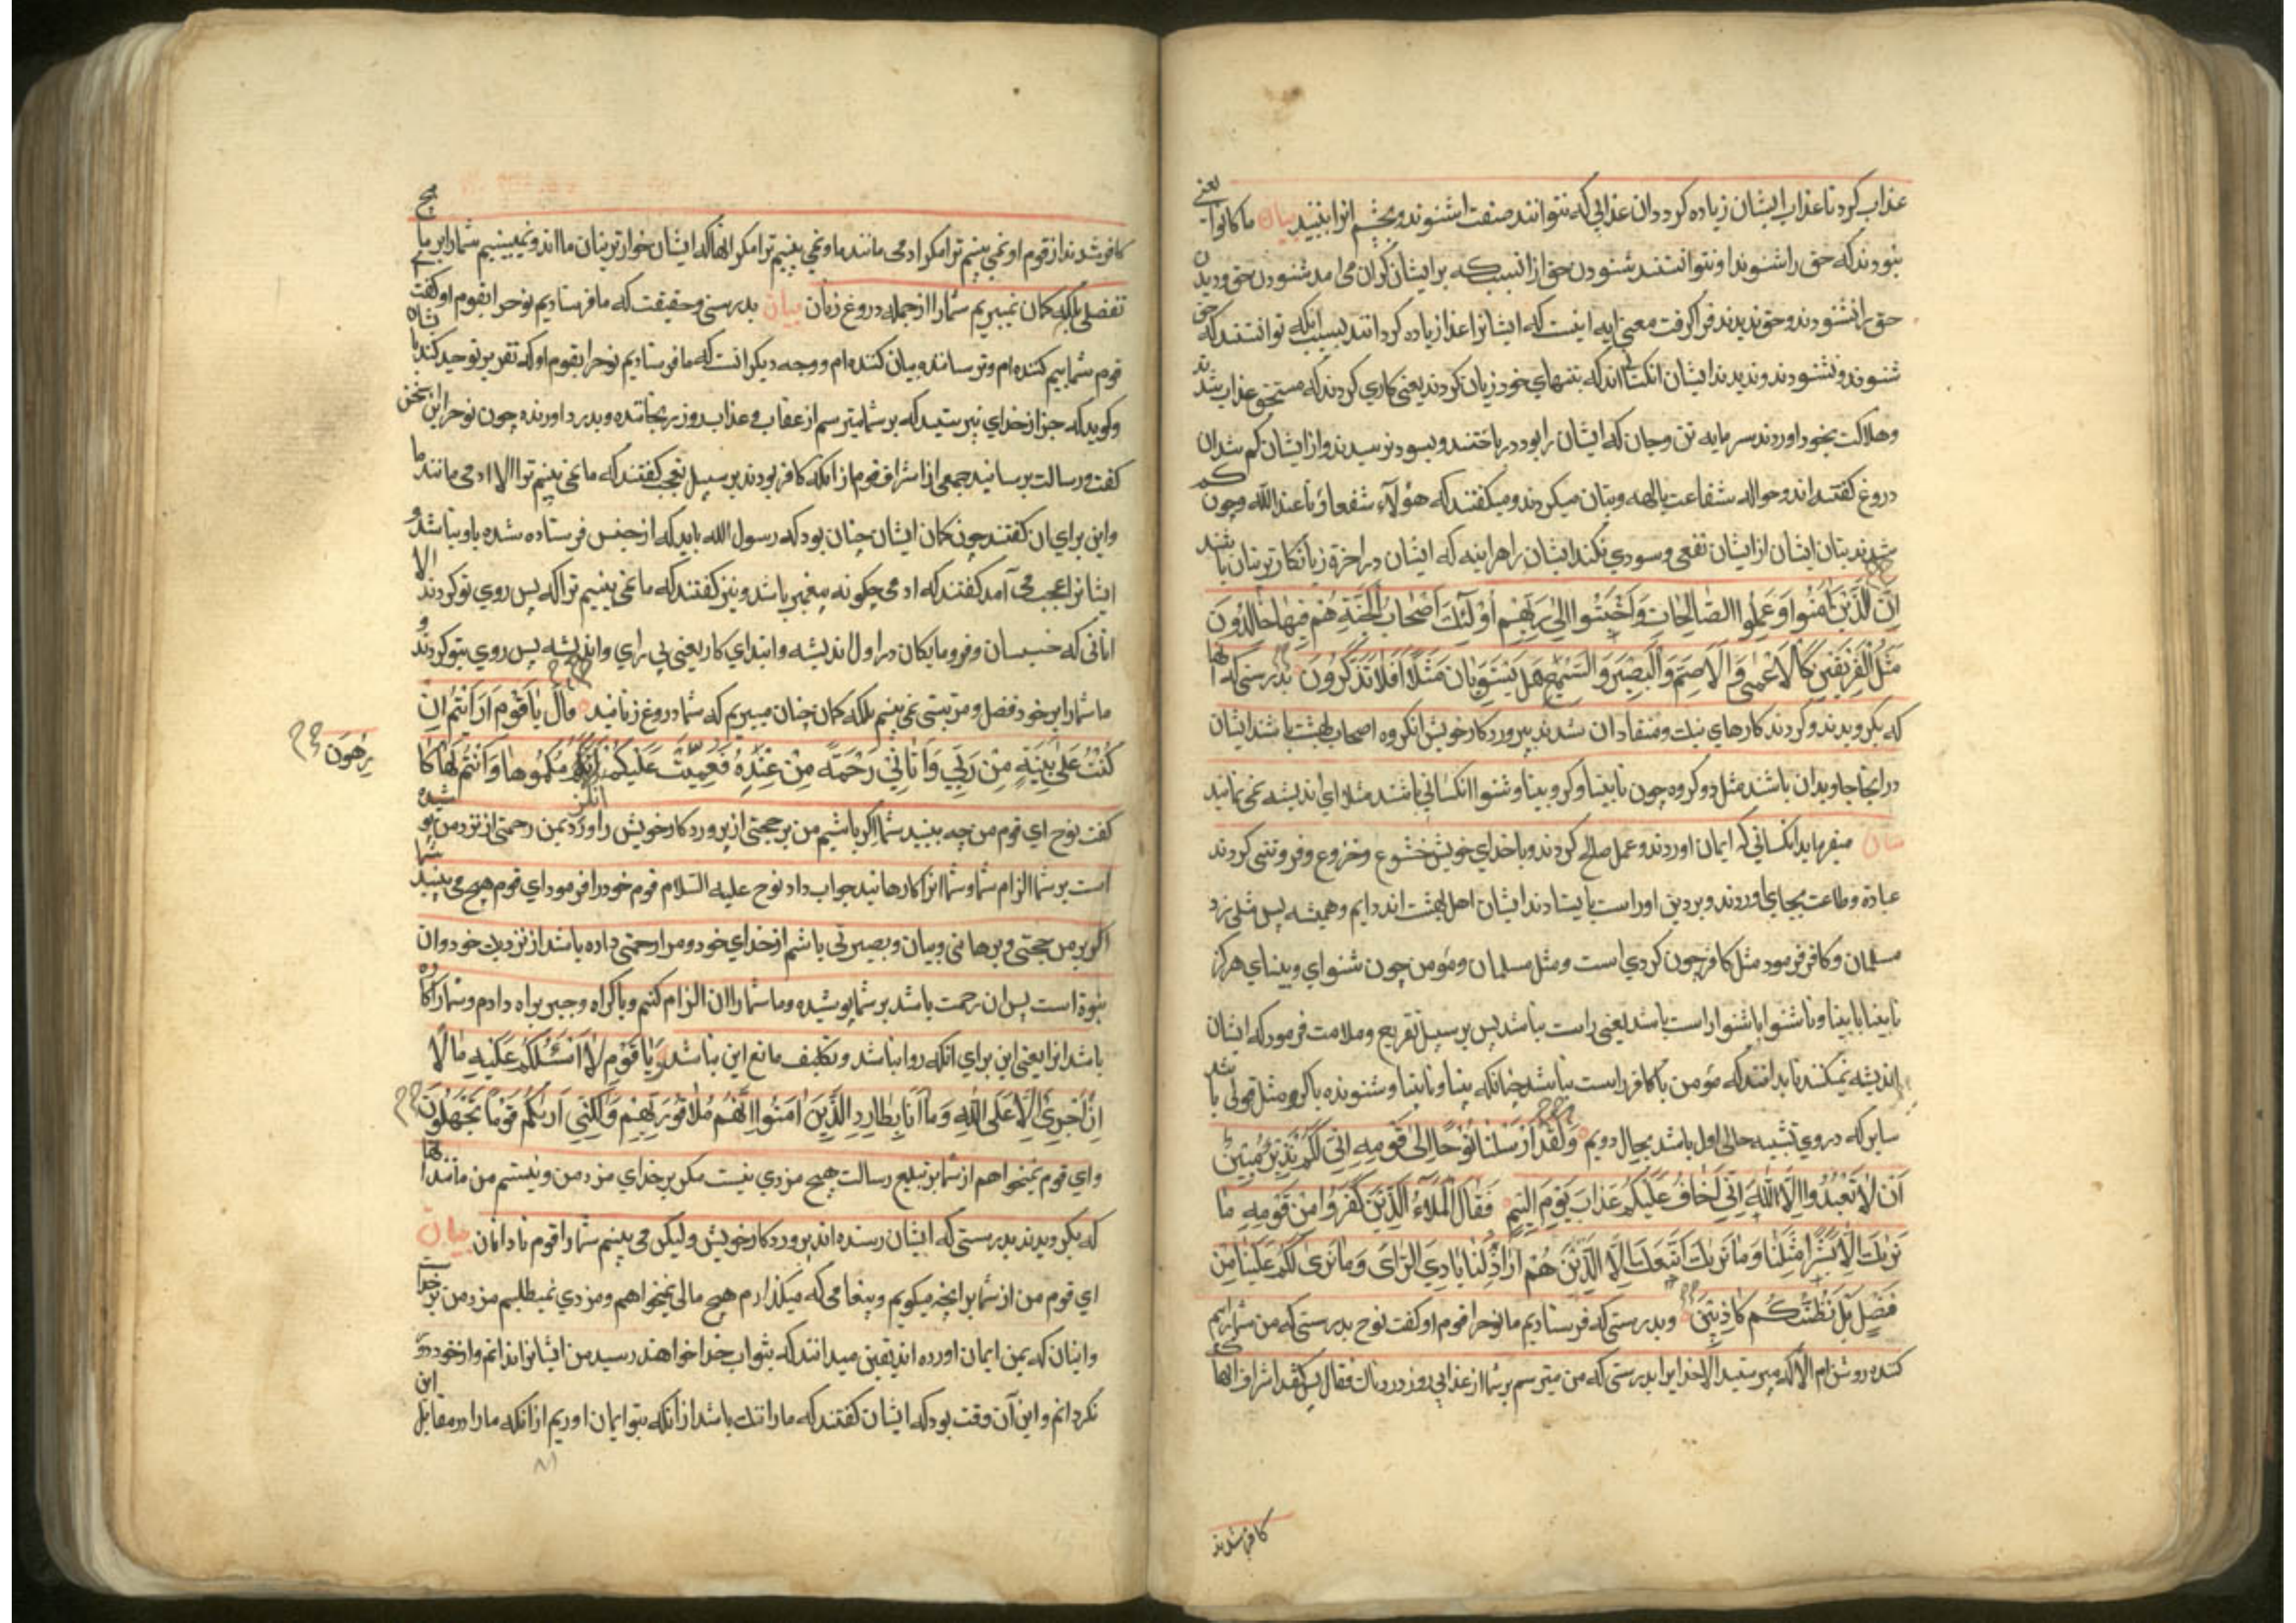 عذاب کرد تا عذاب ایشان زیاده کردد ان عذابی که نتوانند صفت اشنوند و بچشم انرا ببینند بیان ما کانوا یعنی
نبودند که حق را شنوند او نتوانستند شنودن حق از انسبب که بر ایشان کران می امد شنودن حق و دیدن
حق را نشنودند و حق ندیدند فرا کرفت معنی ایه اینست که ایشانرا عذاب زیاده کردانند بسبب انکه توانستند که حق
شنوند و نشنودند و ندیدند ایشان انکسانند که بتنهای خود زیان کردند یعنی کاری کردند که مستحق عذاب شدند
وهلاکت بخود اوردند سرمایه تن وجان که ایشان را بود در باختند و بسود نرسیدند و از ایشان کم شد ان
دروغ کفته اند و حواله شفاعت بالهه و بتان میکردند و میکفتند که هؤلاء شفعاؤنا عند الله و چون کم
شدند بتان ایشان از ایشان نفعی و سودی نکند ایشان را هراینه که ایشان در اخرة زیانکارترینان باشند
اِنَّ الَّذینَ اٰمَنُوا وَعَمِلُوا الصّالِحاتِ وَاَخْبَتُوا اِلیٰ رَبِّهِمْ اُولٰئِكَ اَصْحابُ الْجَنَّةِ هُمْ فیها خالِدُونَ
مَثَلُ الْفَریقَیْنِ کَالْاَعْمیٰ وَالْاَصَمِّ وَالْبَصیرِ وَالسَّمیعِ هَلْ یَسْتَوِیانِ مَثَلًا اَفَلا تَذَکَّرُونَ بدرستی که انها
که بکرویدند و کردند کارهای نیك و منقاد ان شدند بپروردکار خویش انکروه اصحاب بهشت باشند ایشان
در اینجا جاویدان باشند مثل دو کروه چون نابینا و کر و بینا و شنوا انکسانی باشند مثلا ای اندیشه نمی نمائید
بیان میفرماید انکسانی که ایمان اوردند و عمل صالح کردند و با خدای خویش خشوع و خزوع و فروتنی کردند
عبادة و طاعت بجای اوردند و بر دین او راست بایستادند ایشان اهل بهشت اند دایم و همیشه پس مثلی زد
مسلمان و کافر فرمود مثل کافر چون کردی است و مثل مسلمان و مؤمن چون شنوای و بینای هرکز
نابینا با بینا و ناشنوا با شنوا راست باشد یعنی راست نباشد پس بر سبیل تقریع و ملامت فرمود که ایشان
اندیشه نمیکنند تا بدانند که مؤمن با کافر راست نباشد چنانکه بینا و نابینا و شنونده با کر و مثل قولی باشد
سایر که در وی تشبیه حالی اول باشد بحال دویم وَلَقَدْ اَرْسَلْنا نُوحًا اِلیٰ قَوْمِهِ اِنّی لَکُمْ نَذیرٌ مُبینٌ
اَنْ لا تَعْبُدُوا اِلَّا اللهَ اِنّی اَخافُ عَلَیْکُمْ عَذابَ یَوْمٍ اَلیمٍ فَقالَ الْمَلَاءُ الَّذینَ کَفَرُوا مِنْ قَوْمِهِ ما
نَریٰكَ اِلّا بَشَرًا مِثْلَنا وَما نَریٰكَ اتَّبَعَكَ اِلَّا الَّذینَ هُمْ اَراذِلُنا بادِیَ الرَّأیِ وَما نَریٰ لَکُمْ عَلَیْنا مِنْ
فَضْلٍ بَلْ نَظُنُّکُمْ کاذِبینَ و بدرستی که فرستادیم ما نوحرا قوم او کفت نوح بدرستی که من شمارا بیم
کننده روشن ام الا که مپرستید الا خدایرا بدرستی که من میترسم بر شما از عذابی روز دردناك فقال پس کفتند اشراف انها که
کافر شدند
کافر شدند از قوم او نمی بینیم ترا مکر ادمی مانند ما و نمی بینیم ترا مکر انها که ایشان خوارترینان ما اند و نمی بینیم شمارا بر ما هیچ
تفضلی بلکه کمان نمیبریم شمارا از جمله دروغ زنان بیان بدرستی و حقیقت که ما فرستادیم نوحرا بقوم او کفت
قوم شما بیم کننده ام و ترساننده بیان کننده ام و وجه دیکر انست که ما فرستادیم نوحرا بقوم او که تقریر توحید کند با
و کوید که جز از خدای نپرستید که بر شما میترسم از عقاب و عذاب روز رنجاننده و بدرد اورنده چون نوحرا این سخن
کفت و رسالت برسانید جمعی از اشراف قوم از انکه کافر بودند بر سبیل تعجب کفتند که ما نمی بینیم ترا الا ادمی مانند ما
و این برای ان کفتند چون کمان ایشان چنان بود که رسول الله باید که از جنس فرستاده شده باو نباشد و
ایشانرا عجب می آمد کفتند که ادمی چکونه پیغمبر باشد و نیز کفتند که ما نمی بینیم ترا که پس روی تو کردند الا
انانی که خسیسان و فرومایکان در اول اندیشه و ابتدای کار یعنی بی رای و اندیشه پس روی بتو کردند و
ما شمارا بر خود فضل و مرتبتی نمی بینیم بلکه کمان چنان میبریم که شما دروغ زنانید قالَ یا قَوْمِ اَرَاَیْتُمْ اِنْ
کُنْتُ عَلیٰ بَیِّنَةٍ مِنْ رَبّی وَاٰتانی رَحْمَةً مِنْ عِنْدِهِ فَعُمِّیَتْ عَلَیْکُمْ اَنُلْزِمُکُمُوها وَاَنْتُمْ لَها کا
رِهُونَ
کفت نوح ای قوم من چه بینید شما اکر باشیم من بر حجتی از پروردکار خویش را و دّ بمن رحمتی از نزد من پوشیده
است بر شما الزام شما و شما انرا کارهانید جواب داد نوح علیه السّلام قوم خود را فرمود ای قوم هیچ می بینید شما
اکر بر من حجتی و برهانی و بیان و بصیرتی باشم از خدای خود و مرا رحمتی داده باشد از نزدیك خود و ان
نبوة است پس ان رحمت باشد بر شما پوشیده و ما شمارا ان الزام کنیم و باکراه و جبر براه دادم و شمارا کاره
باشد انرا یعنی این برای انکه روا نباشد و تکلیف مانع این نباشد وَیا قَوْمِ لا اَسْئَلُکُمْ عَلَیْهِ مالًا
اِنْ اَجْرِیَ اِلّا عَلَی اللهِ وَما اَنَا بِطارِدِ الَّذینَ اٰمَنُوا اِنَّهُمْ مُلاقُوا رَبِّهِمْ وَلٰکِنّی اَریٰکُمْ قَوْمًا تَجْهَلُونَ
و ای قوم نمیخواهم از شما بر تبلیغ رسالت هیچ مزدی نیست مکر بر خدای مزد من و نیستم من مانند انها
که بکرویدند بدرستی که ایشان رسنده اند پروردکار خویش و لیکن می بینم شمارا قوم نادانان بیان
ای قوم من از شما بر انچه میکویم و پیغامی که میکذارم هیچ مالی نمیخواهم و مزدی نمیطلبم مزد من بر خداست
و اینان که بمن ایمان اورده اند یقین میدانند که بثواب خدا خواهند رسید من ایشانرا نرانم و از خود دور
نکردانم و این آن وقت بود که ایشان کفتند که مارا ننك باشد از انکه بتو ایمان اوریم از انکه مارا در مقابل این